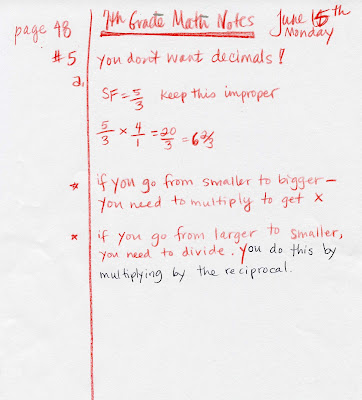 page 48
7th Grade Math Notes
June 15
Monday
#5 you don't want decimals!
a.
SF = 5/3 keep this improper
5/3 × 4/1 = 20/3 = 6 2/3
* if you go from smaller to bigger –
you need to multiply to get x
* if you go from larger to smaller,
you need to divide. you do this by
multiplying by the reciprocal.